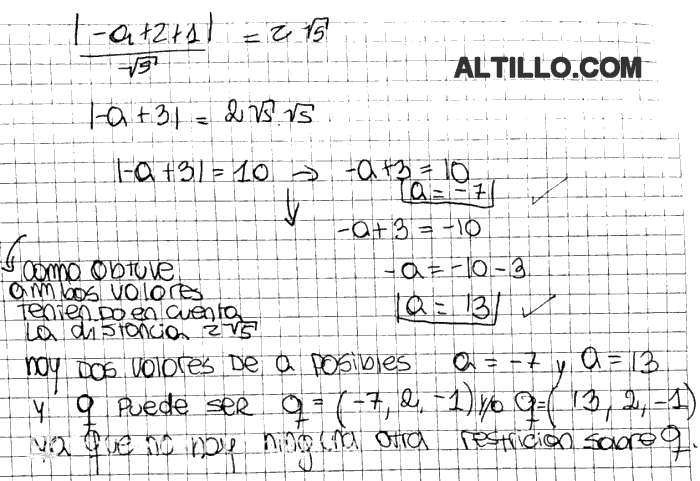 |-a+2+1| / √5 = 2√5
ALTILLO.COM
|-a+3| = 2√5.√5
|-a+3| = 10 → -a+3 = 10
a = -7 ✓
-a+3 = -10
-a = -10-3
a = 13 ✓
como obtuve
ambos valores
teniendo en cuenta
la distancia 2√5
hay dos valores de a posibles a = -7 y a = 13
y q puede ser q = (-7, 2, -1) y/o q = (13, 2, -1)
ya que no hay ninguna otra restricion sobre q.